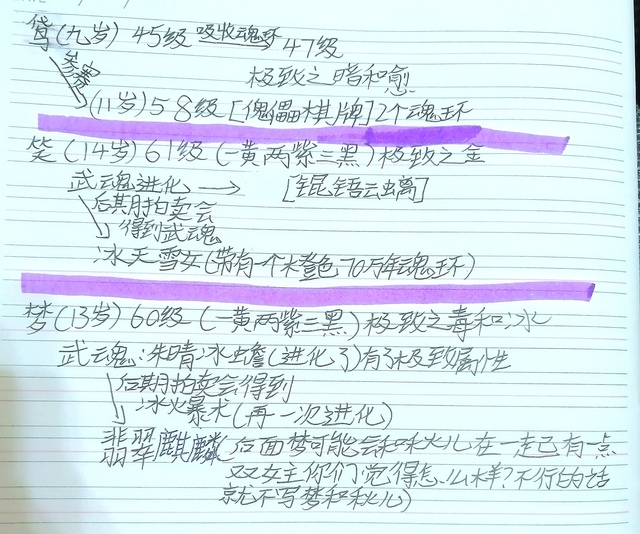 鸢(九岁) 45级 吸收魂环 47级
参赛 极致之暗和愈
(11岁)58级[傀儡棋牌]2个魂环
笑(14岁)61级(一黄两紫三黑)极致之金
武魂进化 → [锟铻云螭]
后期拍卖会
得到武魂
冰天雪女(带有一个米橙色70万年魂环)
梦(13岁)60级(一黄两紫三黑)极致之毒和冰
武魂:朱晴冰蟾(进化了)有了极致属性
后期拍卖会得到
冰火暴术(再一次进化)
翡翠麒麟(后面梦可能会和秋儿在一走已有一点
双女主你们觉得怎么样?不行的话
就不写梦和秋儿)